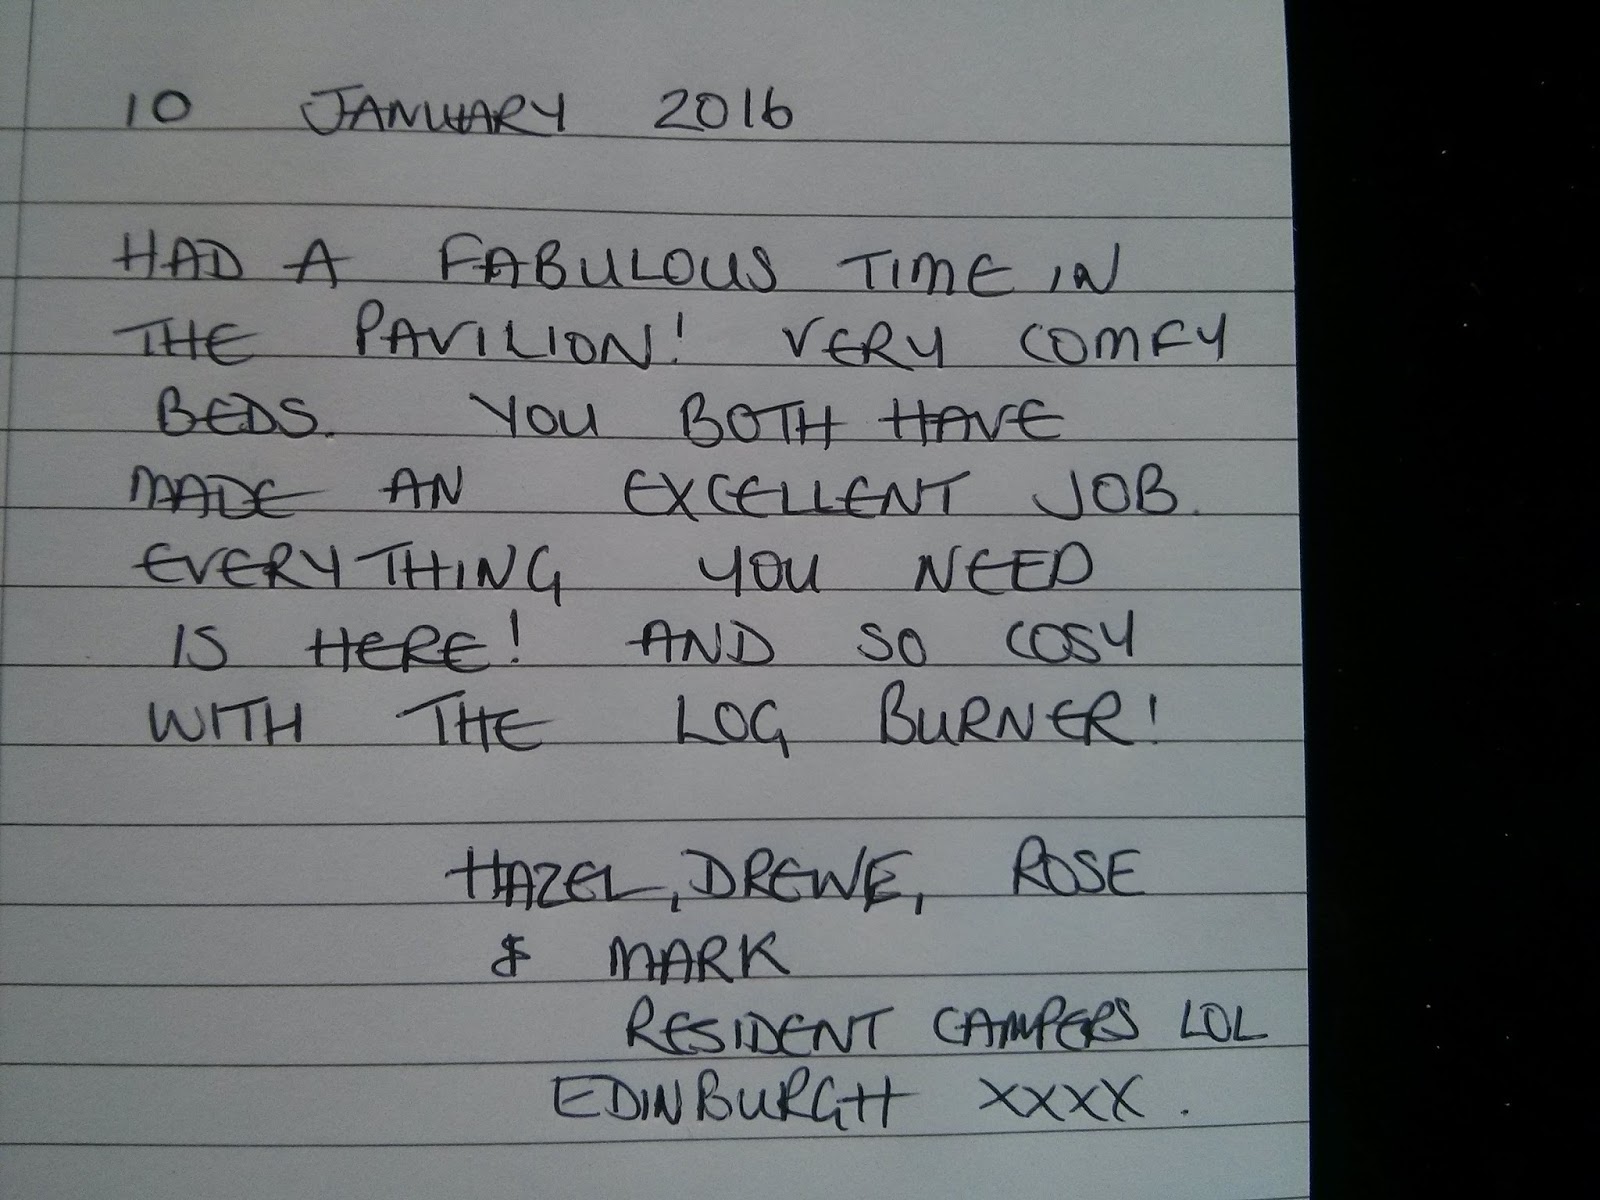 10 JANUARY 2016
HAD A FABULOUS TIME IN
THE PAVILION! VERY COMFY
BEDS. YOU BOTH HAVE
MADE AN EXCELLENT JOB.
EVERYTHING YOU NEED
IS HERE! AND SO COSY
WITH THE LOG BURNER!
HAZEL, DREWE, ROSE
& MARK
RESIDENT CAMPERS LOL
EDINBURGH XXXX.